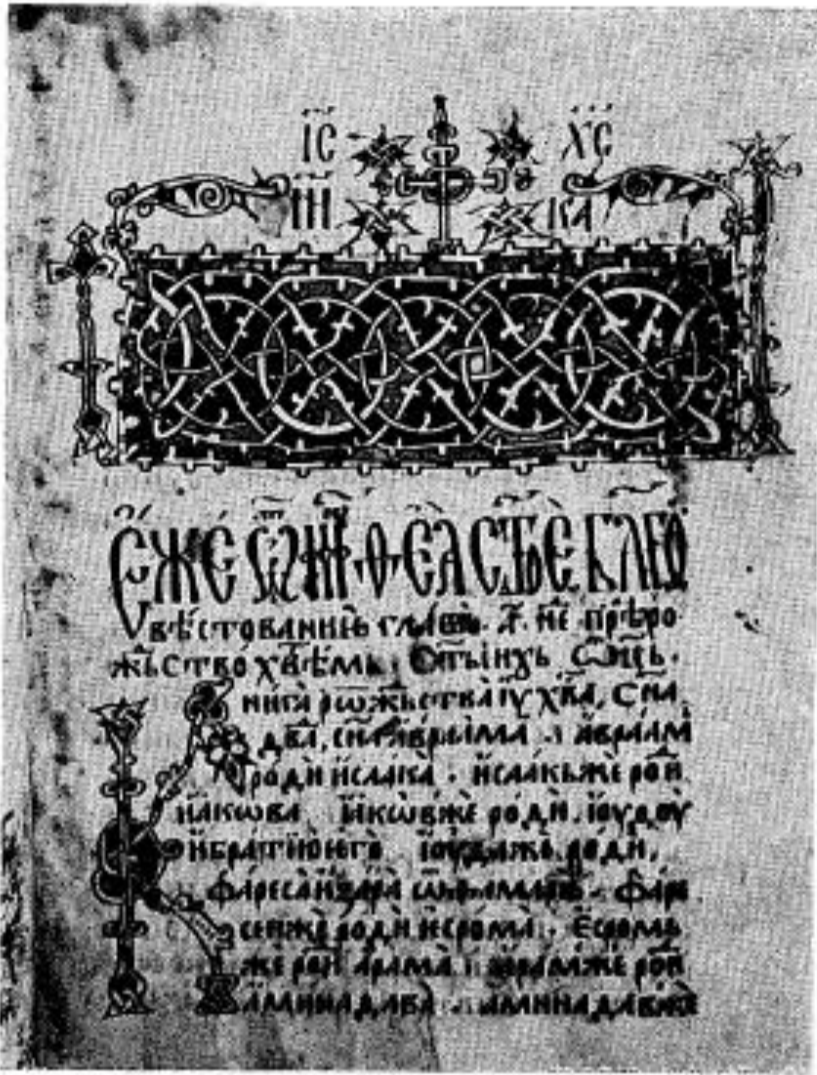 І҃С Х҃С
НИ КА
Е҆́ЖЕ Ѿ МѲ҃ О Е҆Л СТ҃Е БЛГО
вѣствованиѥ глава. а҃. не прѣро
жⷣьство х҃вѣмь
нига рѡжⷣьства і҆у х҃ва, сн҃а
дв҃а, сн҃а а҆враама . а҆враам
роди исаака . исаакьже рѡⷣи
иакѡва иакѡвже роди . іоудоу
ибратиюего іоудаже роди,
фареса изара ѿ фамари . фаре
сьже роди есрома . Есромь
же рѡⷣи арама . арамже рѡⷣи
аминадава . аминадавже